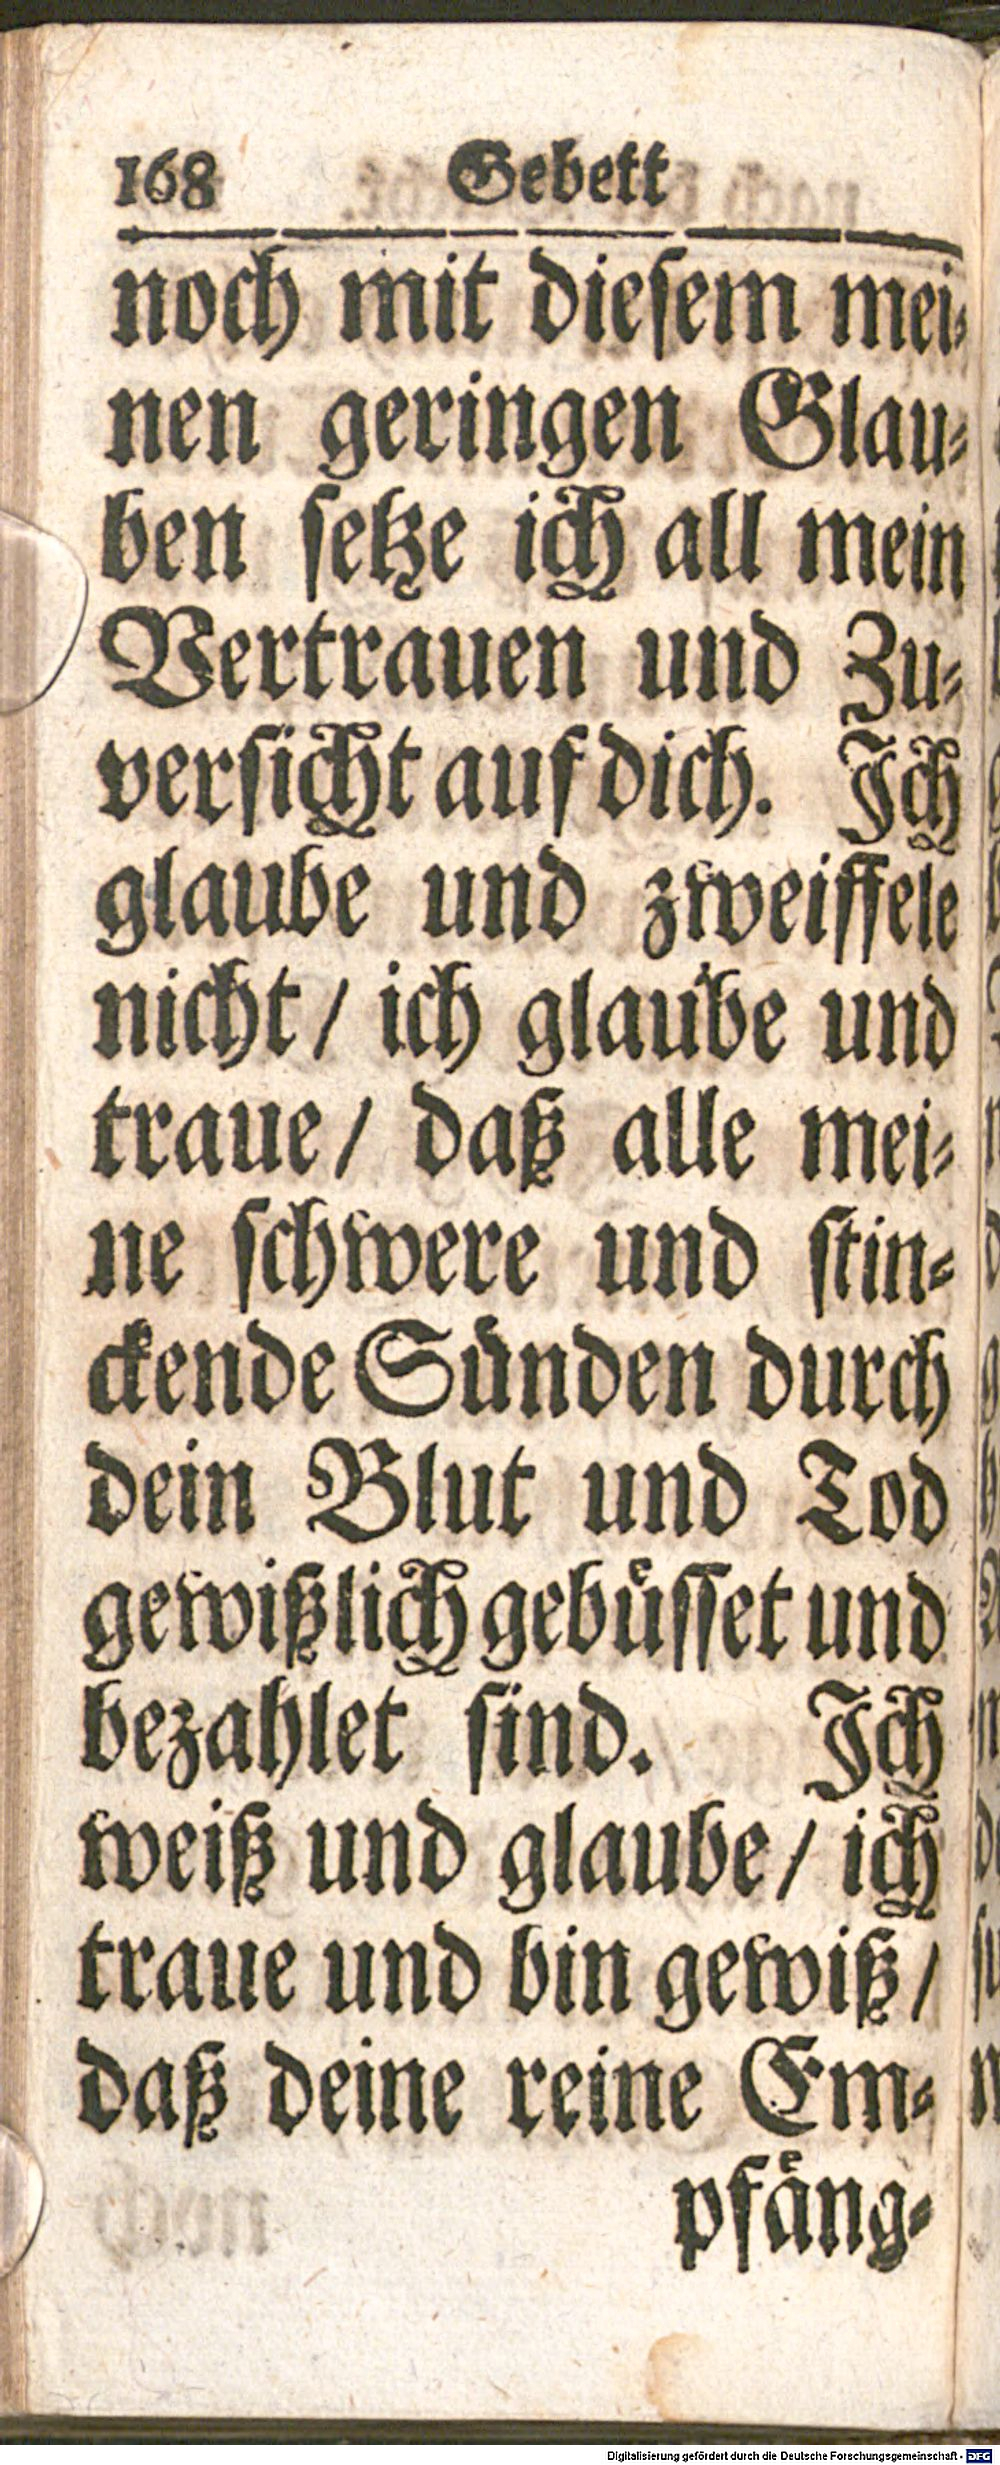 168 Gebett
noch mit diesem mei-
nen geringen Glau-
ben setze ich all mein
Vertrauen und Zu-
versicht auf dich. Ich
glaube und zweiffele
nicht / ich glaube und
traue / daß alle mei-
ne schwere und stin-
ckende Sünden durch
dein Blut und Tod
gewißlich gebüsset und
bezahlet sind. Ich
weiß und glaube / ich
traue und bin gewiß /
daß deine reine Em-
pfäng-
Digitalisierung gefördert durch die Deutsche Forschungsgemeinschaft - DFG